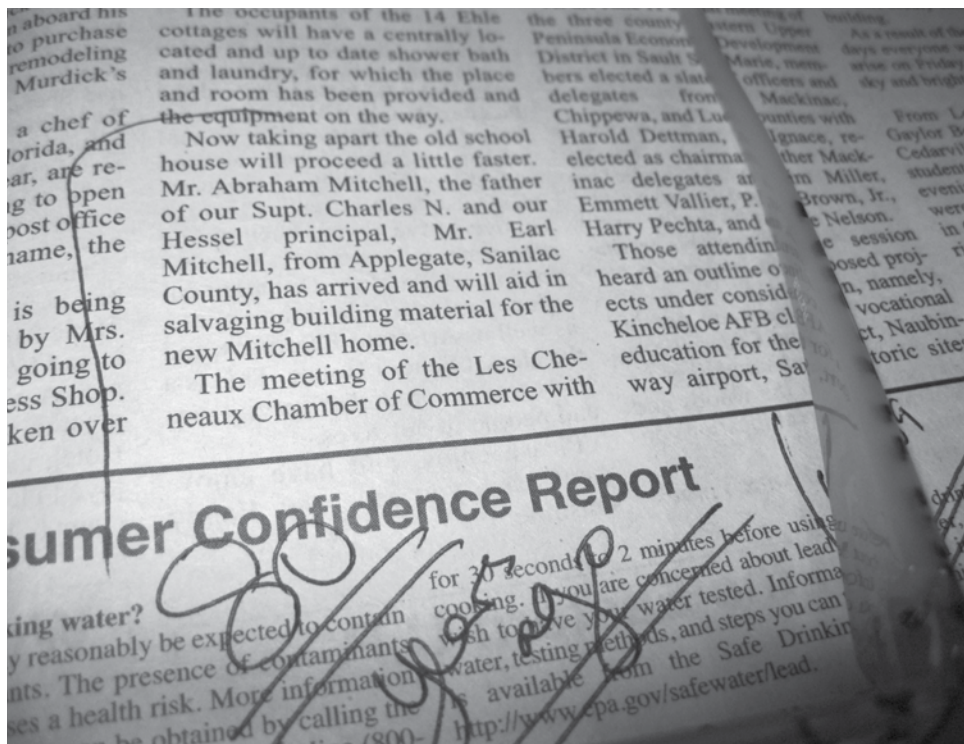 aboard his
to purchase
remodeling
Murdick's
a chef of
lorida, and
ear, are re-
ng to open
post office
name, the
is being
by Mrs.
going to
ess Shop.
ken over
The occupants of the 14 Ehle
cottages will have a centrally lo-
cated and up to date shower bath
and laundry, for which the place
and room has been provided and
the equipment on the way.
Now taking apart the old school
house will proceed a little faster.
Mr. Abraham Mitchell, the father
of our Supt. Charles N. and our
Hessel principal, Mr. Earl
Mitchell, from Applegate, Sanilac
County, has arrived and will aid in
salvaging building material for the
new Mitchell home.
The meeting of the Les Che-
neaux Chamber of Commerce with
the three county Eastern Upper
Peninsula Econom Development
District in Sault S Marie, mem-
bers elected a slate officers and
delegates from Mackinac,
Chippewa, and Luc ounties with
Harold Dettman, Ignace, re-
elected as chairma ther Mack-
inac delegates ar m Miller,
Emmett Vallier, P. Brown, Jr.,
Harry Pechta, and e Nelson.
Those attendin e session
heard an outline o posed proj-
ects under consid n, namely,
Kincheloe AFB cl vocational
education for the ct, Naubin-
way airport, Sa toric sites
building.
As a result of the
days everyone w
arise on Friday
sky and brigh
From L
Gaylor B
Cedarvil
student
eveni
were
in
sumer Confidence Report
king water?
y reasonably be expected to contain
nts. The presence of contaminants
ses a health risk. More information
be obtained by calling the
(800-
for 30 seconds to 2 minutes before using
cooking. If you are concerned about lead
wish to have your water tested. Informa
water, testing methods, and steps you can
is available from the Safe Drinkin
http://www.epa.gov/safewater/lead.
50
years
ago